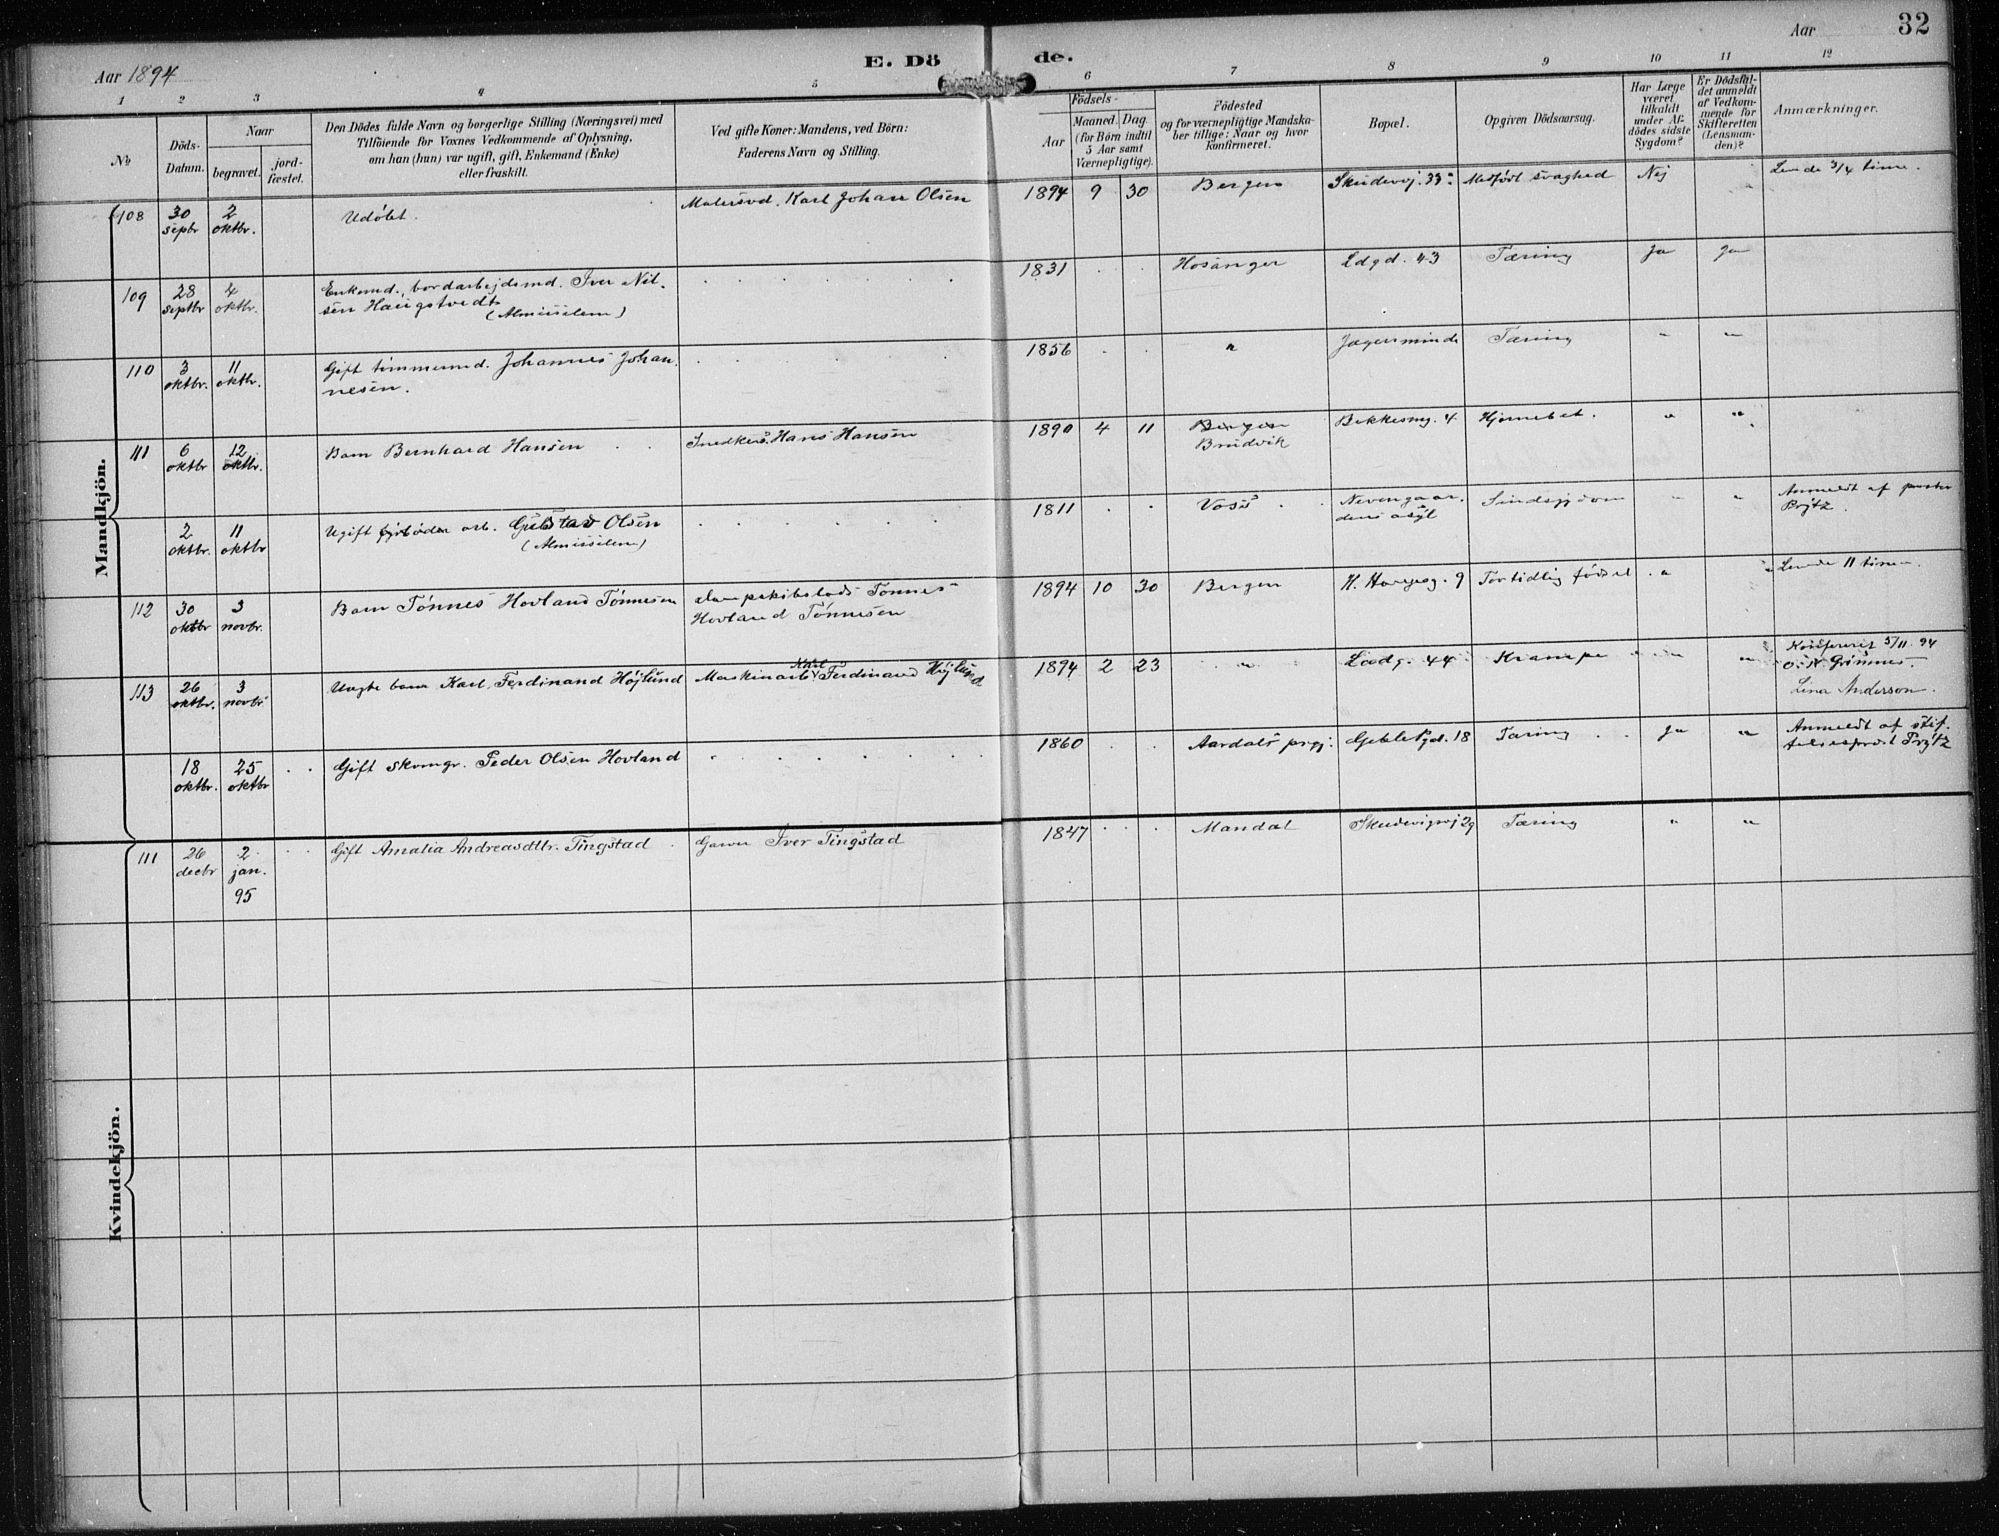 Aar 1894
E. Dö de.
Aar
32
1 2 3 4 5 6 7 8 9 10 11 12
No
Döds-
Datum.
Naar
begravet.
jord-
fæstet.
Den Dödes fulde Navn og borgerlige Stilling (Næringsvei) med
Tilföiende for Voxnes Vedkommende af Oplysning,
om han (hun) var ugift, gift, Enkemand (Enke)
eller fraskilt.
Ved gifte Koner: Mandens, ved Börn:
Faderens Navn og Stilling.
Födsels-
Aar
Maaned. Dag
(for Börn indtil
5 Aar samt
Værnepligtige).
Födested
og for værnepligtige Mandska-
ber tillige: Naar og hvor
Konfirmeret.
Bopæl.
Opgiven Dödsaarsag.
Har Læge
været
tilkaldt
under Af-
dödes sidste
Sygdom?
Er Dödsfal-
det anmeldt
af Vedkom-
mende for
Skifteretten
(Lensman-
den)?
Anmærkninger.
Mandkjön.
108 30 septbr 2 oktbr. Udøbt. Malersvd. Karl Johan Olsen 1894 9 30 Bergen Skudevvj. 33 Medfødt svaghed Nej Levede 3/4 time.
109 28 septbr 4 oktbr. Enkemd., bordarbejdsmd. Iver Nil-
sen Haugstvedt
(Almisselem) 1831 Hosanger Ldgd. 43 Tæring Ja Ja
110 3 oktbr. 11 oktbr. Gift tømmermd. Johannes Johan-
nesen. 1856 " Jægersminde Tæring " "
111 6 oktbr 12 oktbr. Barn Bernhard Hansen Snedkers. Hans Hansen 1890 4 11 Bergen
Brudvik Bekkesmg. 4 Hjernebet. " "
2 oktbr. 11 oktbr Ugift arb. Gulstad Olsen
(Almisselem) 1811 Voss Nevengaar-
dens asyl Sindssygdom " " Anmeldt af pastor
Prytz.
112 30 oktbr 3 novbr. Barn Tønnes Hovland Tønnesen Dampskibslods Tønnes
Hovland Tønnesen 1894 10 30 Bergen H. Haugeg. 9 Fortidlig fødsel " " Levede 11 timer.
113 26 oktbr. 3 novbr Uægte barn Karl Ferdinand Højlund Maskinarb. Karl Ferdinand Højlund 1894 2 23 " Ladg. 44 Krampe " " Konfereret 5/11 94
O. N. Grimnes.
Lina Anderson.
18 oktbr. 25 oktbr Gift skomgr. Peder Olsen Hovland 1860 Aardals prgj. Geble Pgd. 18 Tæring Ja " Anmeldt af stif-
telsesprest Prytz
Kvindekjön.
111 26 decbr 2 jan. 95 Gift Amalia Andreasdttr. Tingstad Garver Iver Tingstad 1847 Mandal Skudevigsvj 29 Tæring " "